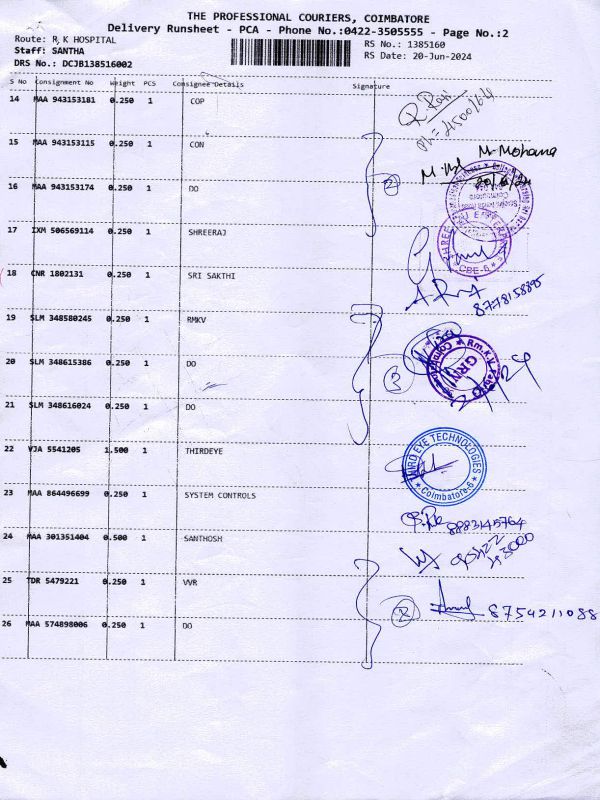 THE PROFESSIONAL COURIERS, COIMBATORE
Delivery Runsheet - PCA - Phone No.:0422-3505555 - Page No.:2
Route: R, K HOSPITAL
Staff: SANTHA
DRS No.: DCJB138516002
RS No.: 1385160
RS Date: 20-Jun-2024
S No Consignment No Weight PCS Consignee Details Signature
14 MAA 943153181 0.250 1 COP
15 MAA 943153115 0.250 1 CON
M. Mohana
16 MAA 943153174 0.250 1 DO
2
17 IXM 506569114 0.250 1 SHREERAJ
CBE-6
18 CNR 1802131 0.250 1 SRI SAKTHI
8778158895
19 SLM 348580245 0.250 1 RMKV
Rm.K.V.
GRN
20 SLM 348615386 0.250 1 DO
3
21 SLM 348616024 0.250 1 DO
22 VJA 5541205 1.500 1 THIRDEYE
THIRD EYE TECHNOLOGIES
Coimbatore-6
23 MAA 864496699 0.250 1 SYSTEM CONTROLS
8883145764
24 MAA 301351404 0.500 1 SANTHOSH
25 TDR 5479221 0.250 1 VVR
2 8754211088
26 MAA 574898006 0.250 1 DO